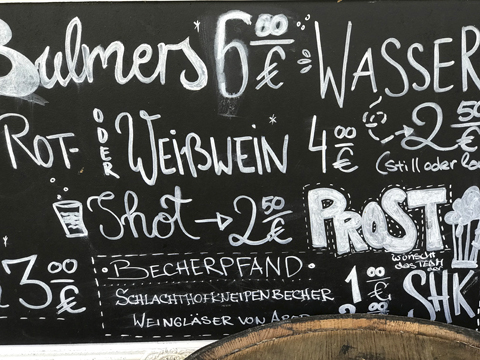 Bulmers 6 00 € WASSER
ROT- ODER WEIßWEIN 4 00 € 2 50
(still oder
Shot → 2 50 €
PROST
wünscht
das TEAM
der
SHK
3 00 €
BECHERPFAND
SCHLACHTHOFKNEIPENBECHER 1 00 €
WEINGLÄSER VON